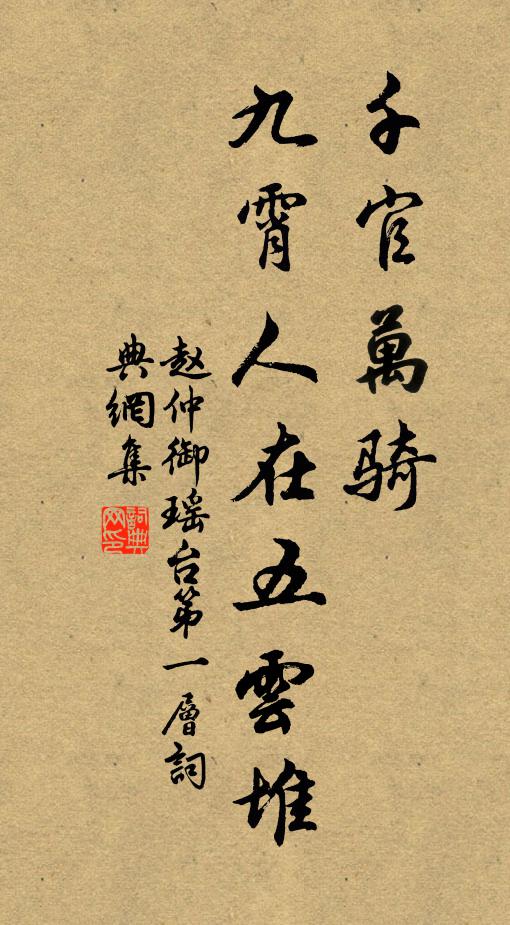 千官萬騎
九霄人在五雲堆
赵仲御瑶台第一層詞
典網集
詞典网印